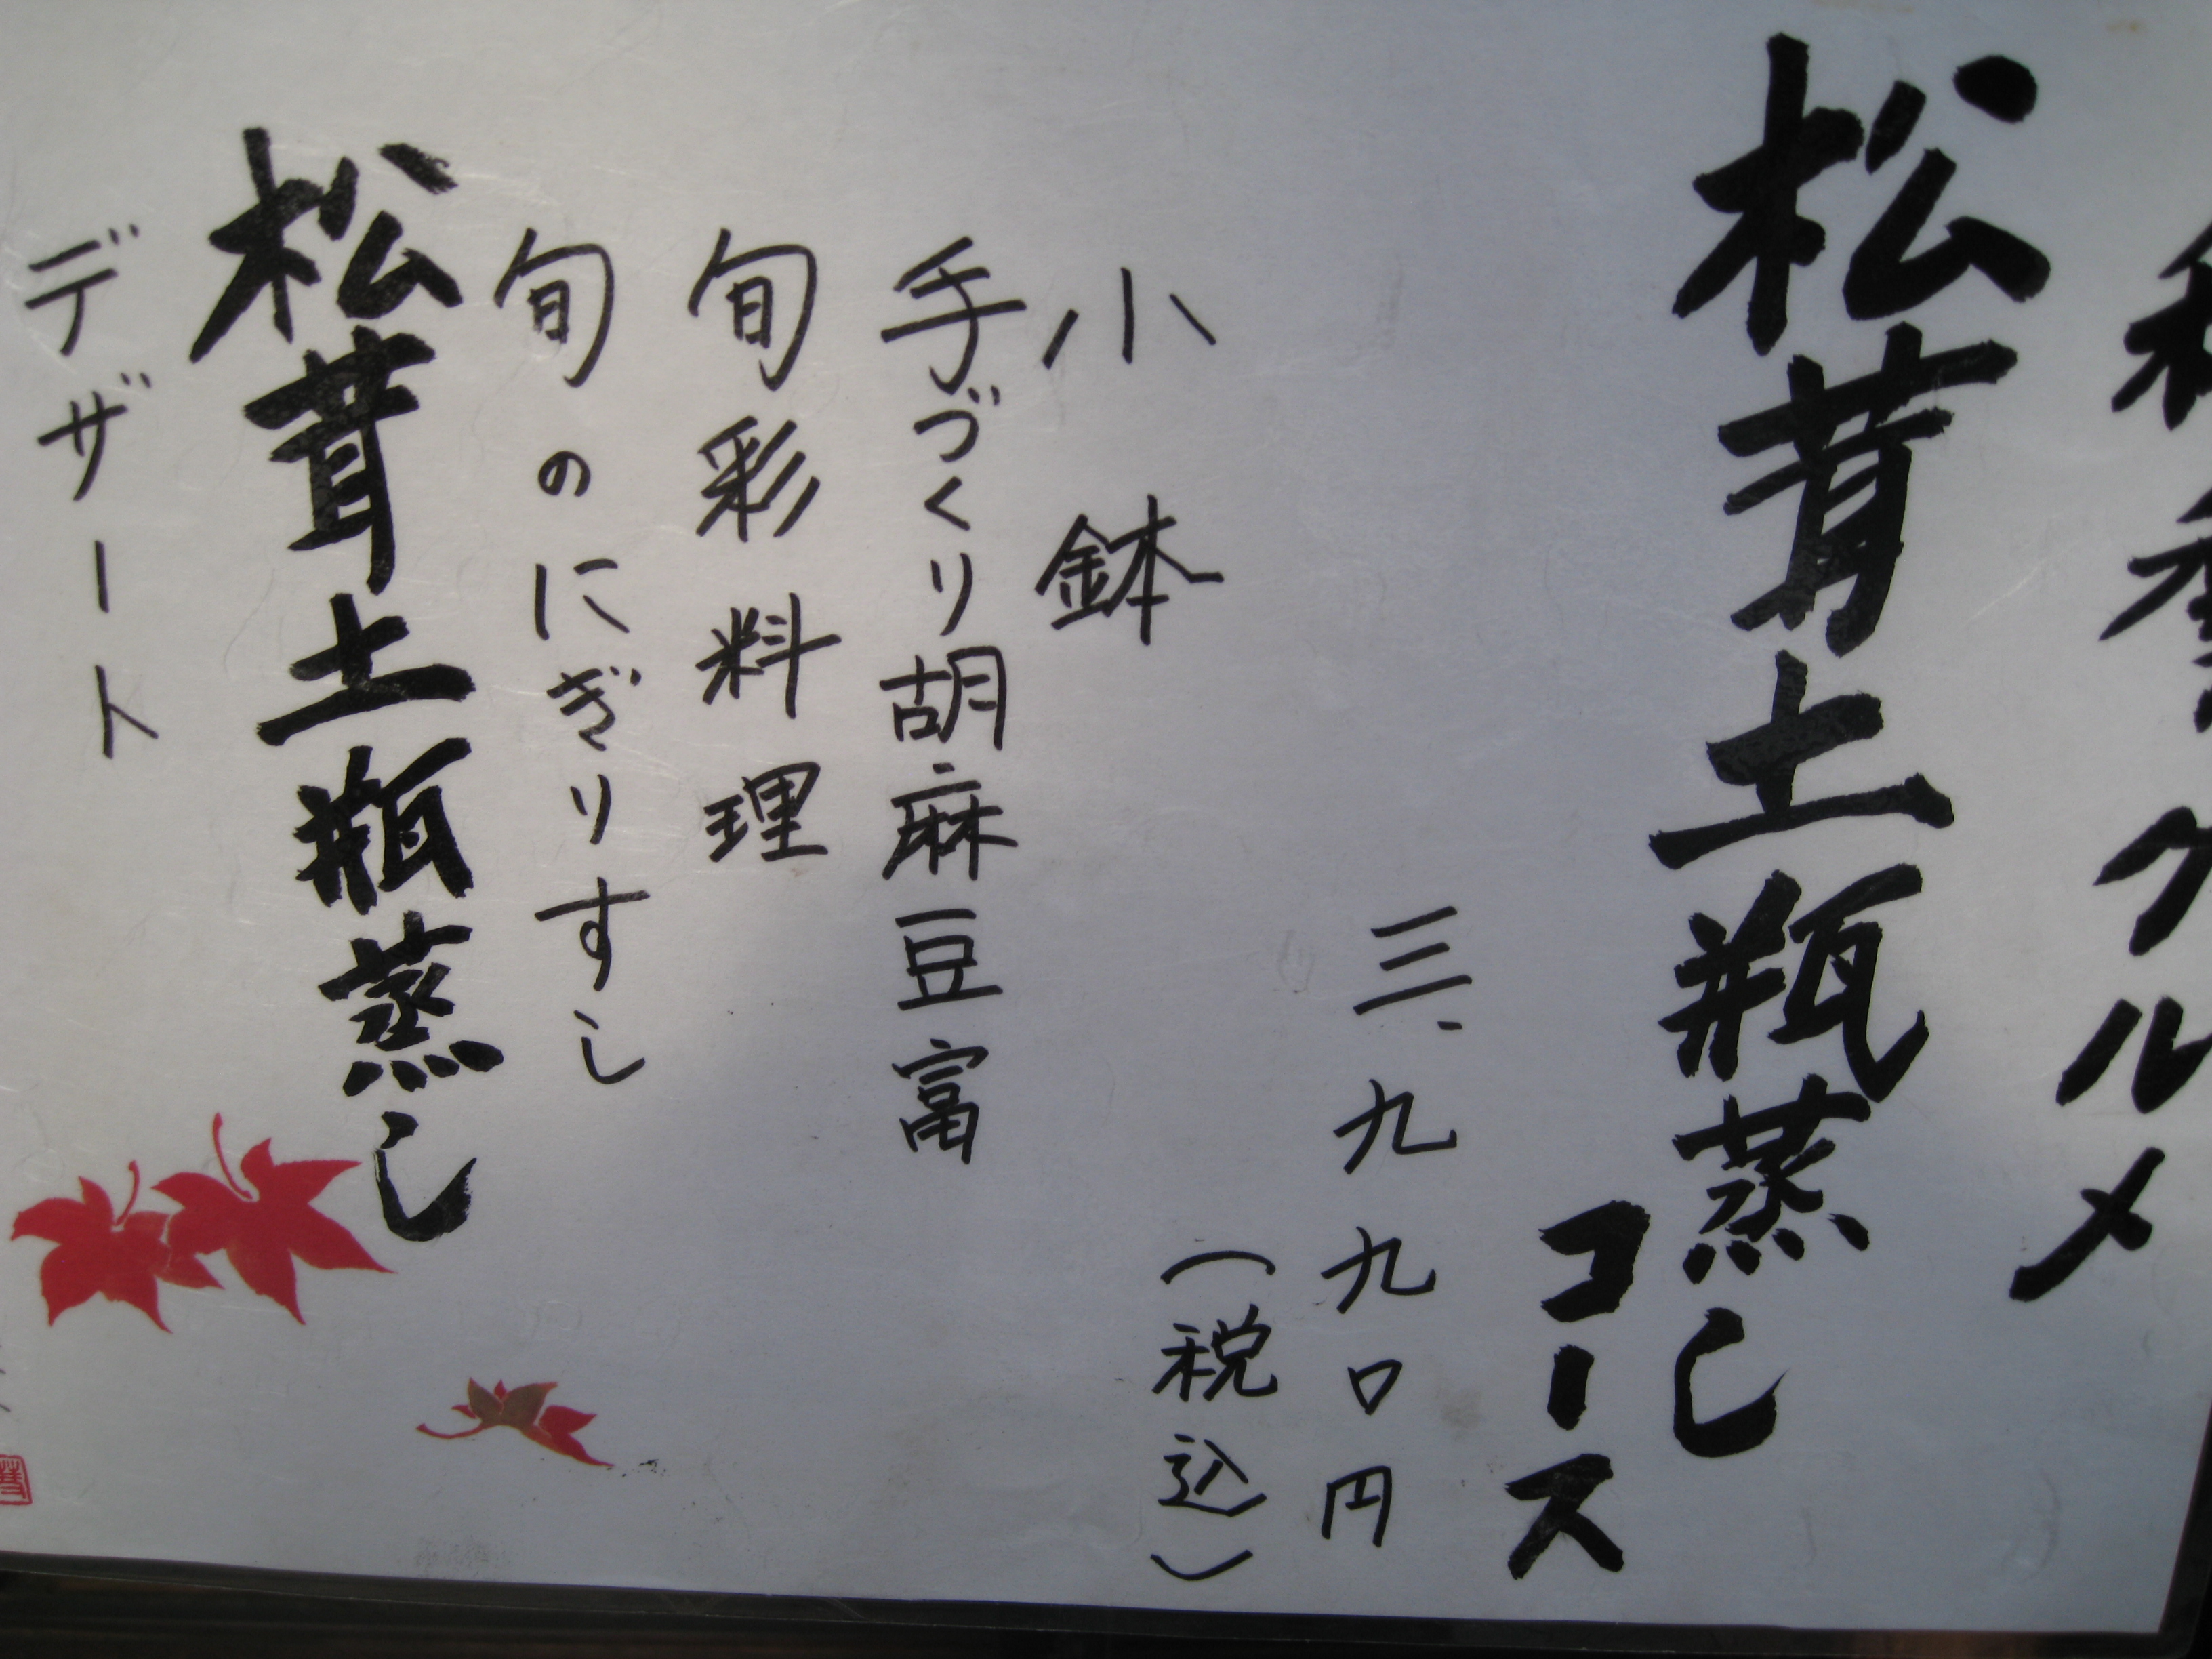 グルメ
松茸土瓶蒸し
コース
三、九九〇円
（税込）
小鉢
手づくり胡麻豆富
旬彩料理
旬のにぎりすし
松茸土瓶蒸し
デザート